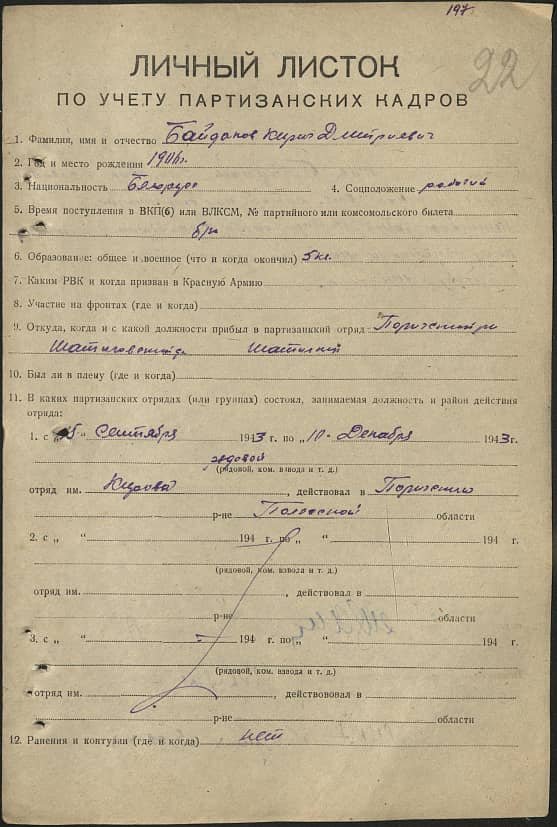 197.
22
ЛИЧНЫЙ ЛИСТОК
ПО УЧЕТУ ПАРТИЗАНСКИХ КАДРОВ
1. Фамилия, имя и отчество Байдаков Кирил Дмитриевич
2. Год и место рождения 1906 г.
3. Национальность Белорус 4. Соцположение рабочий
5. Время поступления в ВКП(б) или ВЛКСМ, № партийного или комсомольского билета
б/п
6. Образование: общее и военное (что и когда окончил) 5 кл.
7. Каким РВК и когда призван в Красную Армию
8. Участие на фронтах (где и когда)
9. Откуда, когда и с какой должности прибыл в партизанкий отряд
10. Был ли в плену (где и когда)
11. В каких партизанских отрядах (или группах) состоял, занимаемая должность и район действия
отряда:
1. с „ Сентября 1943 г. по „10„ Декабря 1943 г.
рядовой
(рядовой, ком. взвода и т. д.)
отряд им. Кирова, действовал в
р-не Полесской области
2. с „ “ 194 г. по „ “ 194 г.
(рядовой, ком. взвода и т. д.)
отряд им. , действовал в
р-не области
3. с „ “ 194 г. по „ “ 194 г.
(рядовой, ком. взвода и т. д.)
отряд им. , действовал в
р-не области
12. Ранения и контузии (где и когда) нет